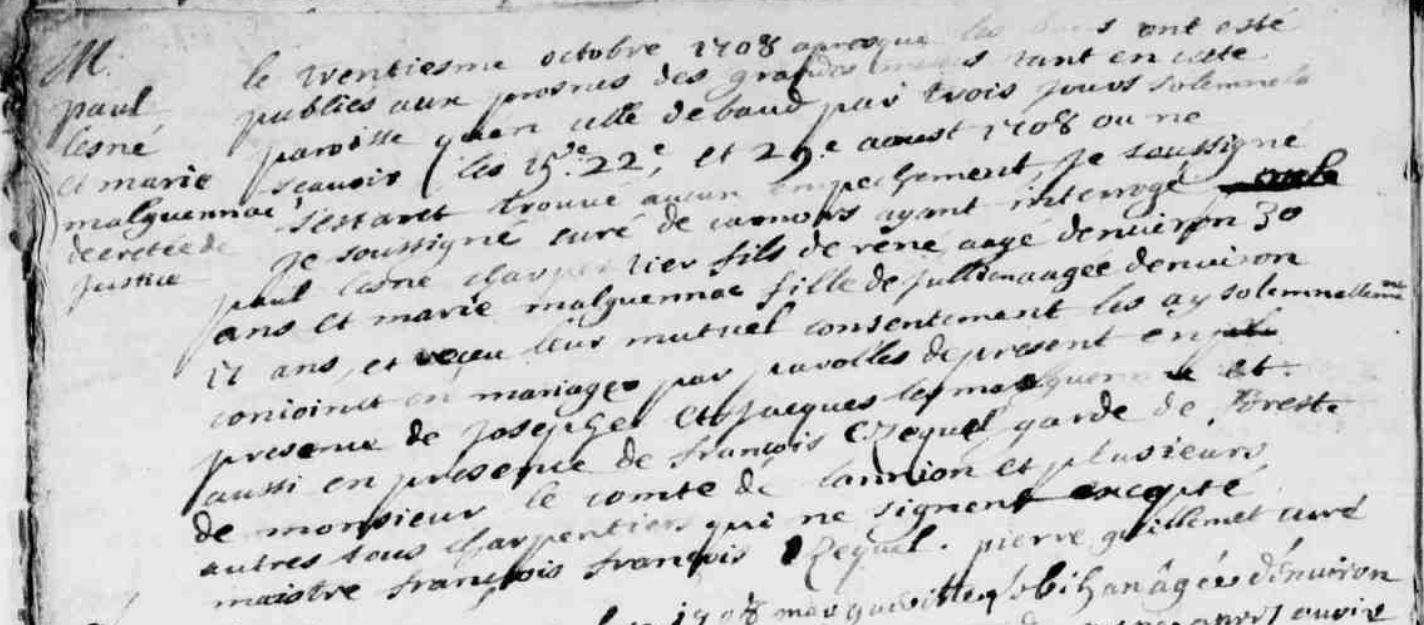 M.
paul
lesné
et marie
malguennac
decretée de
justice
le trentiesme octobre 1708 apresque les ont esté
publiés aux prosnes des grandes tant en cette
paroisse quen celle de baud par trois jours solemnels
scavoir (les 15e. 22e, et 29.e aoust 1708 ou ne
sestant trouvé aucun empechement, je soussigné
je soussigné curé de camors ayant interrogé
paul lesné charpentier fils de rené aagé denviron 30
ans et marie malguennac fille de jullien aagée denviron
17 ans, et reçeu leur mutuel consentement les ay solemnellement
conioinct en mariage par parolles de present en
presence de josephe et jacques les malguennac et
aussi en presence de françois Ezequel garde de forest
de monsieur le comte de lannion et plusieurs
autres tous charpentiers qui ne signent excepté
maistre françois françois Ezequel. pierre guillemet curé
1708 bihan âgée dénuiron